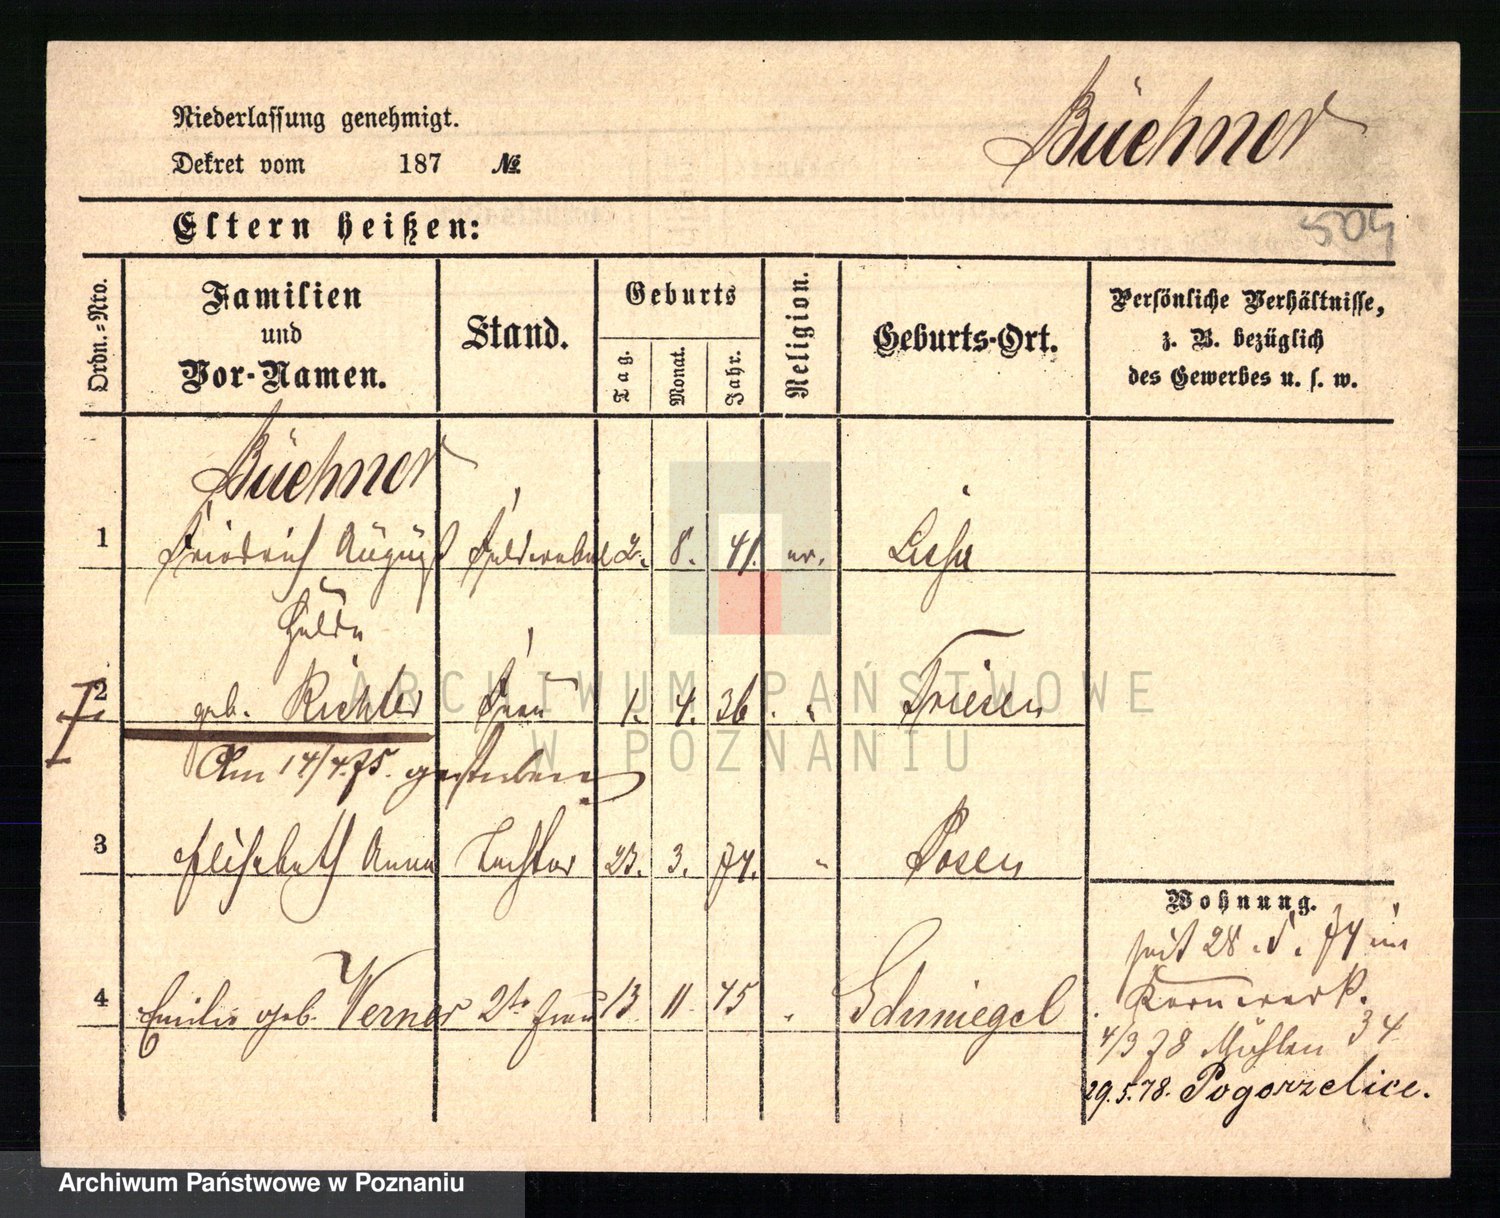 Niederlassung genehmigt.
Büchner
Dekret vom 187 №
Eltern heißen:
504
Ordn.-Nro.
Familien und Vor-Namen.
Stand.
Geburts
Tag. Monat. Jahr.
Religion.
Geburts-Ort.
Persönliche Verhältnisse, z. B. bezüglich des Gewerbes u. s. w.
Büchner
1 Friedrich August Feldwebel 2. 8. 41. ev.
Hulda
2 geb. Richter Frau 1. 4. 36. " Friesen
Am 14/4.75. gestorben
3 Elisabeth Anna Tochter 23. 3. 74. " Posen
Wohnung.
seit 28. 5. 74 im
Kernwerk.
4 Emilie geb. Werner 2te Frau 13 11. 45 " Schmiegel
4/3 78 Mühlen 34
29.5.78. Pogorzelice.
ARCHIWUM PAŃSTWOWE
W POZNANIU
Archiwum Państwowe w Poznaniu